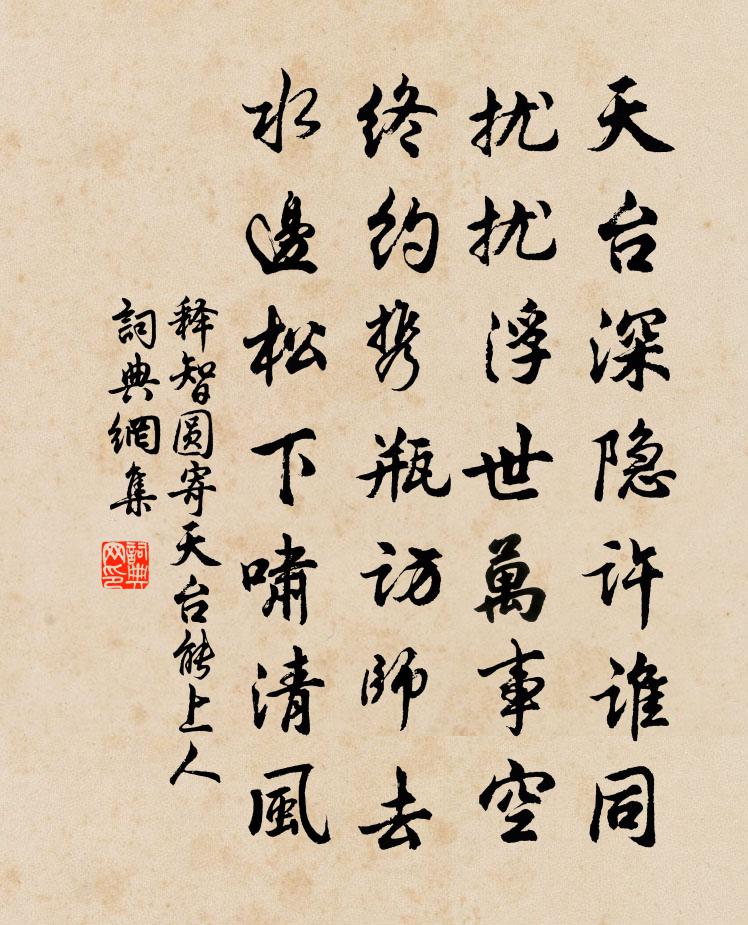 天台深隐許誰同
扰扰浮世萬事空
终約携瓶访師去
水邊松下嘯清風
释智圆寄天台能上人
詞典網集
詞典网印